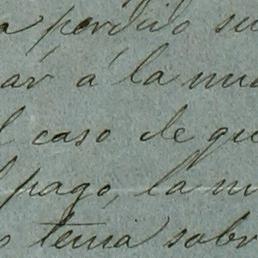 a perdido su
ar á la mu
l caso de qu
l pago, la m
o tema sobr